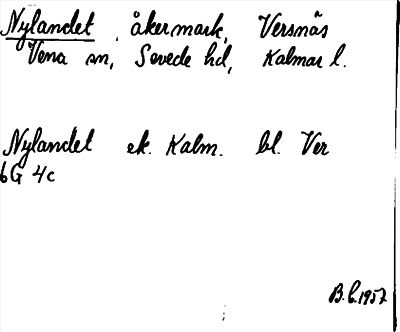 Nylandet, åkermark, Versnäs
Vena sn, Sevede hd, Kalmar l.
Nylandet ek. Kalm. bl. Ver
6G 4c
B.L. 1957